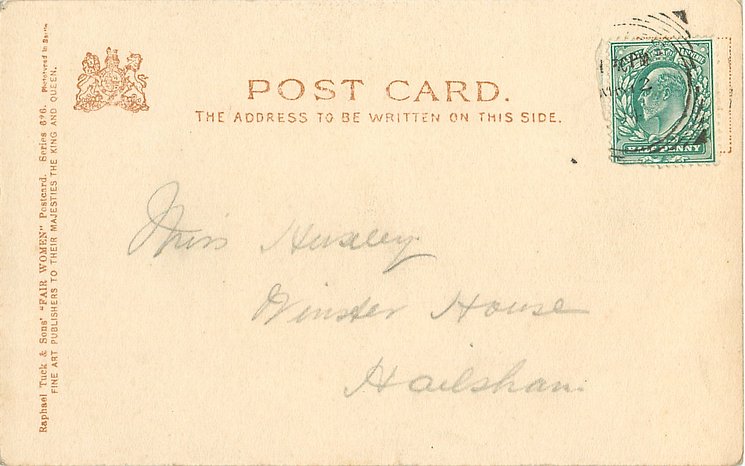 POST CARD.
THE ADDRESS TO BE WRITTEN ON THIS SIDE.
HALFPENNY
Miss
House
Hailsham
Raphael Tuck & Sons' "FAIR WOMEN" Postcard. Series 676. Photographed in
FINE ART PUBLISHERS TO THEIR MAJESTIES THE KING AND QUEEN.